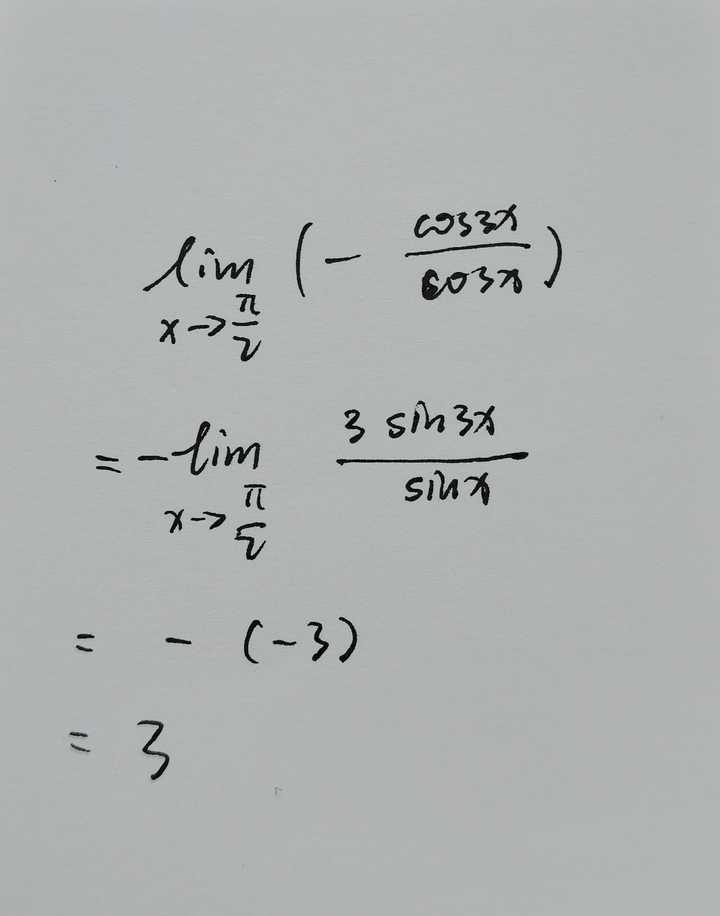 lim x→π/2 (- cos3x/cosx)
= -lim x→π/2 3 sin3x/sinx
= - (-3)
= 3